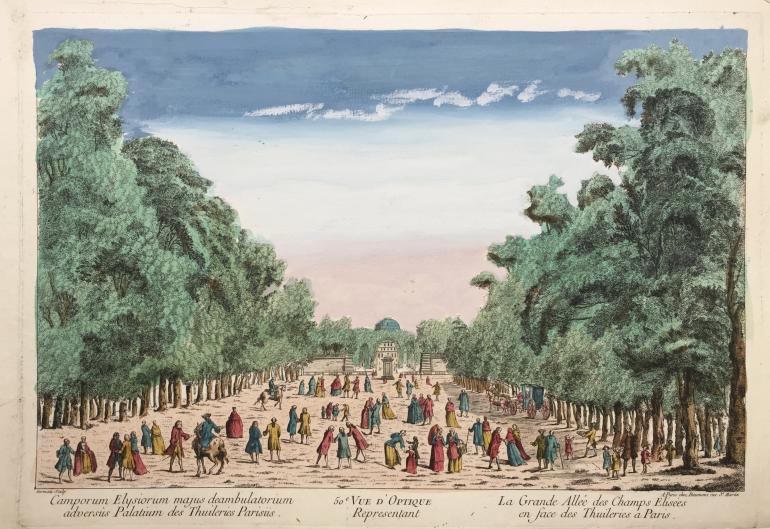 A Paris chez Beaumont rue St. Martin
Camporum Elysiorum majus deambulatorium
adversus Palatium des Thuileries Parisiis.
50.e VUE D'OPTIQUE
Representant
La Grande Allée des Champs Elisées
en face des Thuileries à Paris.